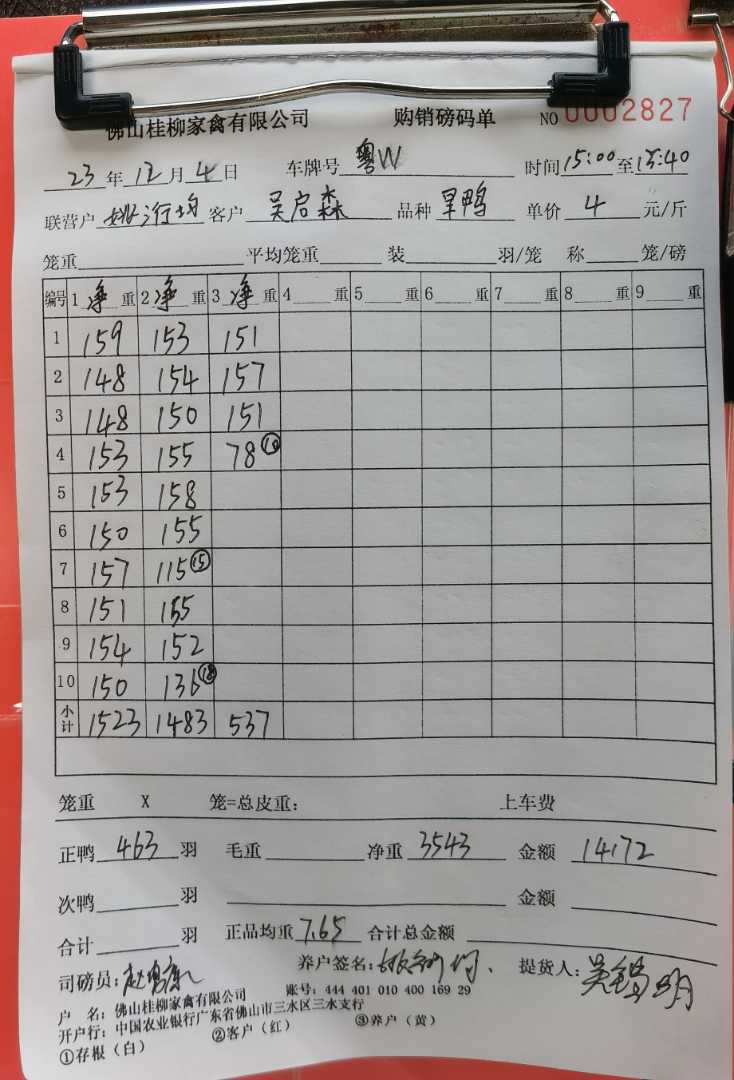 佛山桂柳家禽有限公司 购销磅码单 NO 0002827
23年12月4日 车牌号 粤W 时间15:00至15:40
联营户 客户 吴启森 品种 旱鸭 单价 4 元/斤
笼重 平均笼重 装 羽/笼 称 笼/磅
编号 1 净 重 2 净 重 3 净 重 4 重 5 重 6 重 7 重 8 重 9 重
1 159 153 151
2 148 154 157
3 148 150 151
4 153 155 78 ⑩
5 153 158
6 150 155
7 157 115 ⑮
8 151 155
9 154 152
10 150 136 ⑱
小计 1523 1483 537
笼重 X 笼=总皮重: 上车费
正鸭 463 羽 毛重 净重 3543 金额 14172
次鸭 羽 金额
合计 羽 正品均重 7.65 合计总金额
司磅员: 养户签名: 提货人:
户 名: 佛山桂柳家禽有限公司 账号: 444 401 010 400 169 29
开户行: 中国农业银行广东省佛山市三水区三水支行
①存根(白) ②客户(红) ③养户(黄)